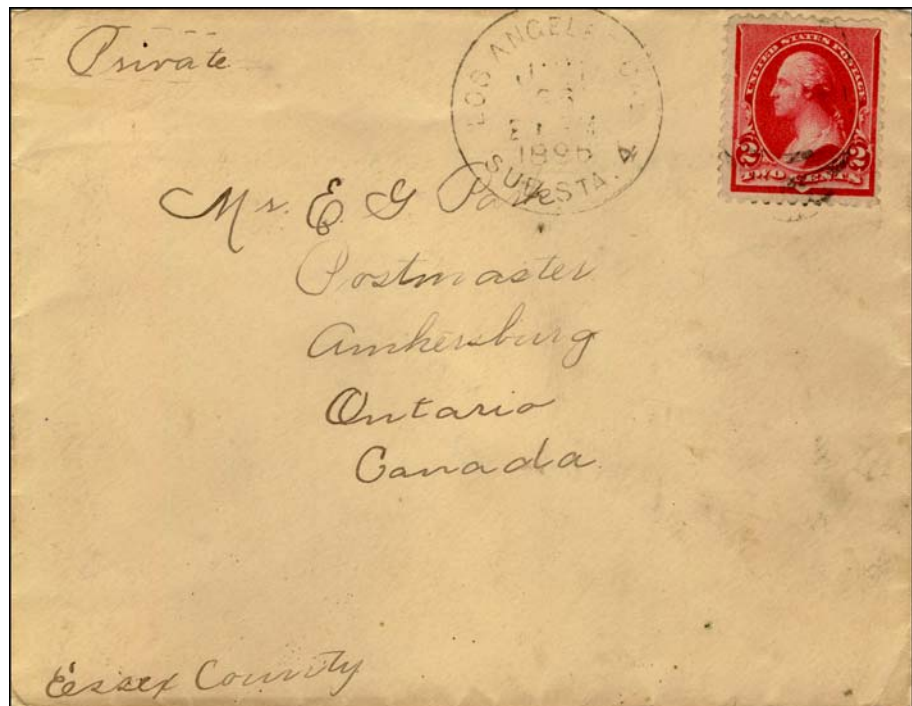 Private
LOS ANGELES CAL
1896
SUB STA. 4
UNITED STATES POSTAGE
2 2
TWO CENTS
Mr. E G
Postmaster
Amhersburg
Ontario
Canada
Essex County